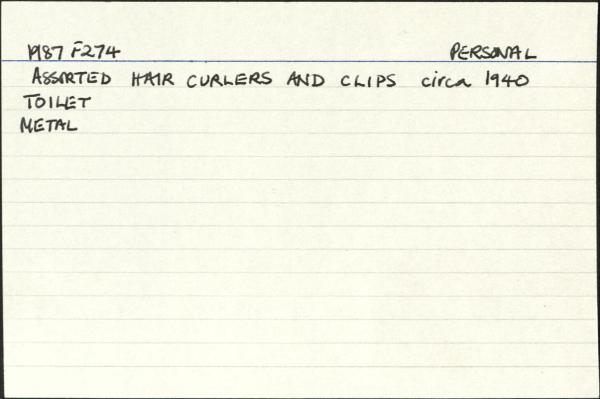 1987 F274 PERSONAL
ASSORTED HAIR CURLERS AND CLIPS circa 1940
TOILET
METAL